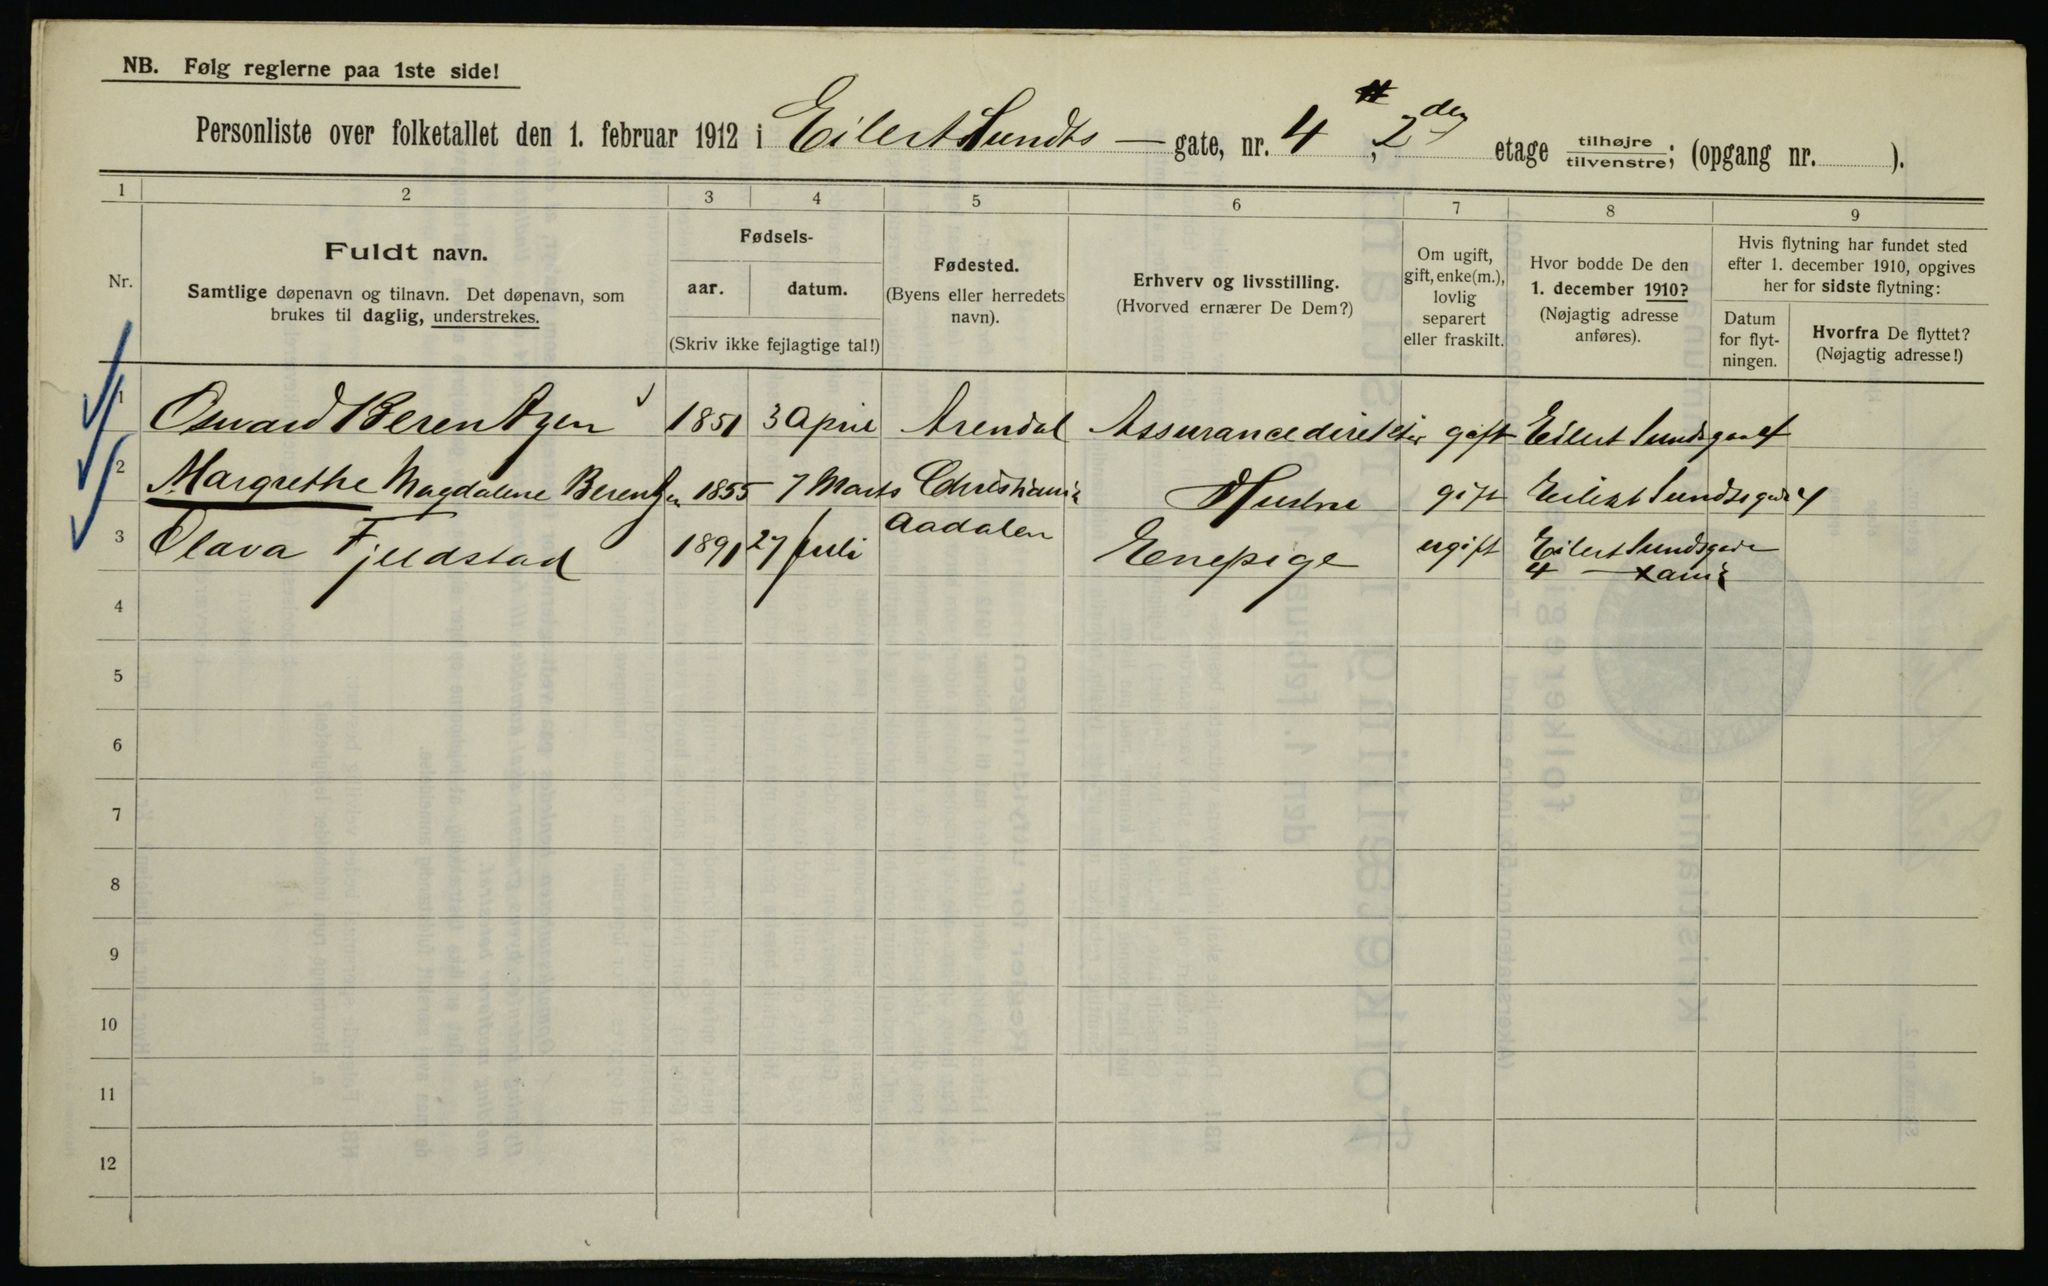 NB. Følg reglerne paa 1ste side!
Personliste over folketallet den 1. februar 1912 i Eilert Sundts — gate, nr. 4, 2den etage tilhøjre tilvenstre; (opgang nr. ).
1 2 3 4 5 6 7 8 9
Nr.
Fuldt navn.
Samtlige døpenavn og tilnavn. Det døpenavn, som
brukes til daglig, understrekes.
Fødsels-
aar. datum.
(Skriv ikke fejlagtige tal!)
Fødested.
(Byens eller herredets
navn).
Erhverv og livsstilling.
(Hvorved ernærer De Dem?)
Om ugift,
gift, enke(m.),
lovlig
separert
eller fraskilt.
Hvor bodde De den
1. december 1910?
(Nøjagtig adresse
anføres).
Hvis flytning har fundet sted
efter 1. december 1910, opgives
her for sidste flytning:
Datum
for flyt-
ningen.
Hvorfra De flyttet?
(Nøjagtig adresse!)
1 Osvard Berentzen 1851 3 April Arendal Assurancedirektør gift Eilert Sundsgae 4
2 Margrethe Magdalene Berentzen 1855 7 Marts Christiania Hustru gift Eilert Sundtsgade 4
3 Olava Fjeldstad 1891 27 Juli Aadalen Enepige ugift Eilert Sundsgade
4
4
5
6
7
8
9
10
11
12